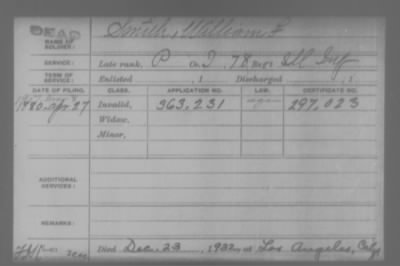 DEAD
NAME OF SOLDIER: Smith, William F
SERVICE: Late rank, P Co. I, 78 Reg't Ill Inf
TERM OF SERVICE: Enlisted , 1 Discharged , 1
DATE OF FILING. CLASS. APPLICATION NO. LAW. CERTIFICATE NO.
1880 Apr 27 Invalid, 363,231 297,023
Widow,
Minor,
ADDITIONAL SERVICES:
REMARKS:
Died Dec. 23, 1932, at Los Angeles,